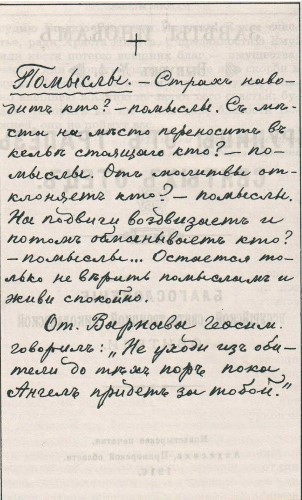 Помыслы. – Страхъ наво-
дитъ кто? – помыслы. Съ мѣ-
ста на мѣсто переноситъ въ
кельѣ стоящаго кто? – по-
мыслы. Отъ молитвы от-
клоняетъ кто? – помыслы.
На подвиги воздвизаетъ и
потомъ обманываетъ кто?
– помыслы... Остается то-
лько не вѣрить помысламъ и
живи спокойно.
От. Варнава геѳсим.
говорилъ: „Не уходи изъ оби-
тели до тѣхъ поръ, пока
Ангелъ придетъ за тобой."